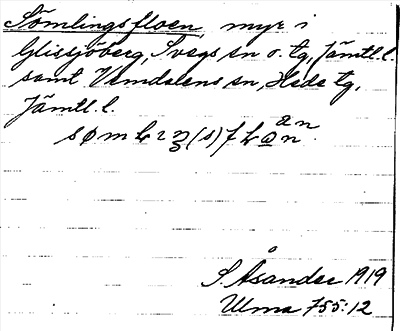 Sömlingsfloen myr i
Glissjöberg, Svegs sn o. tg, Jämtl. l.
samt Vemdalens sn, Hede tg,
Jämtl. l.
S. Åsander 1919
Ulma 755:12